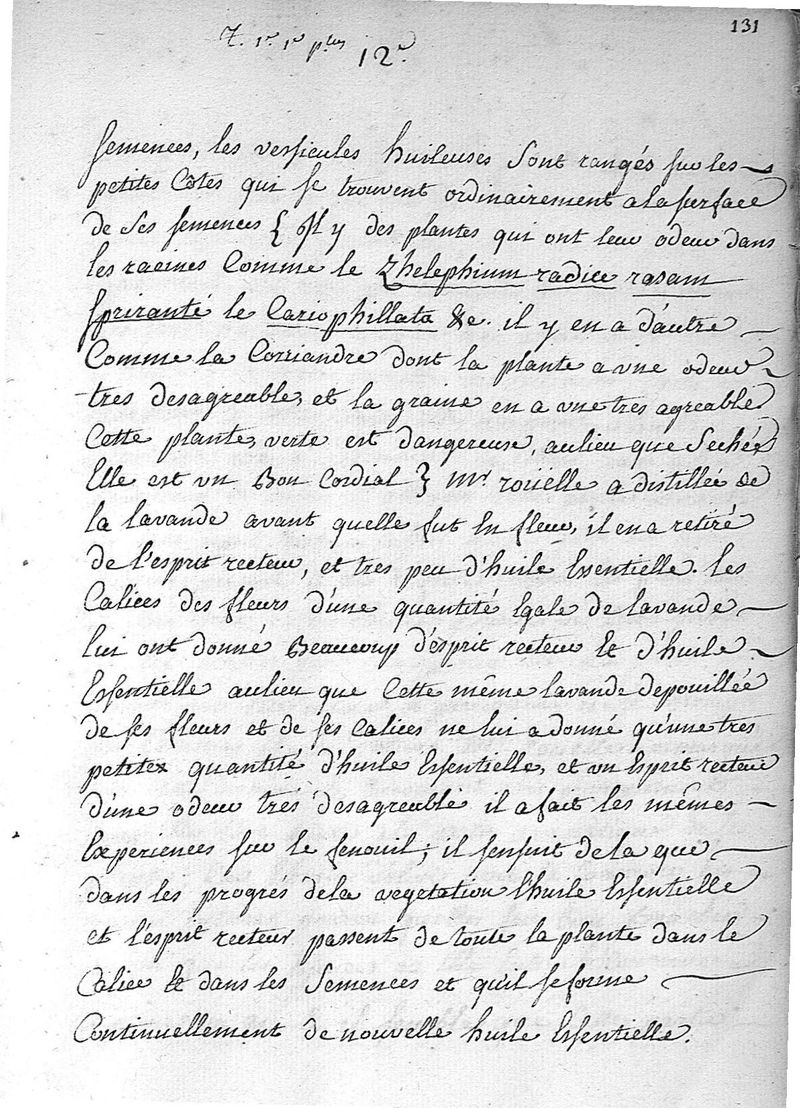 131
T. 1er 1e ptie 12e
semences, les vessicules huileuses sont rangés sur les
petites Côtes qui se trouvent ordinairement a la surface
de ses semences { oIl y des plantes qui ont leur odeur dans
les racines Comme le Thelephium radice rosam
spiranté le Cariophillata &c. il y en a d'autre
Comme la Corriandre dont la plante a une odeur
tres desagreable, et la graine en a une tres agreable
Cette plante, verte est dangereuse, aulieu que Sechée
Elle est un Bon Cordial } Mr. roüelle a distillée de
la lavande avant quelle fut En fleur, il en a retiré
de l'esprit recteur, et tres peu d'huile Essentielle. les
Calices des fleurs d'une quantité Egale de lavande
lui ont donné Beaucoup d'esprit recteur Et d'huile
Essentielle aulieu que Cette même lavande depouillée
de ses fleurs et de ses Calices ne lui a donné qu'une tres
petite quantité d'huile Essentielle, et un Esprit recteur
d'une odeur tres desagreable il a fait les mêmes
Experiences sur le fenouil; il sensuit de la que
dans les progres de la vegetation l'huile Essentielle
et l'esprit recteur passent de toute la plante dans le
Calice Et dans les Semences et qu'il se forme
Continuellement de nouvelle huile Essentielle.